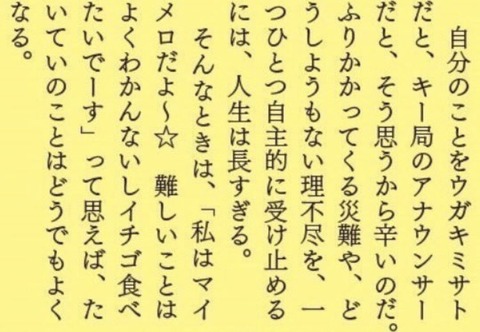 自分のことをウガキミサト
だと、キー局のアナウンサー
だと、そう思うから辛いのだ。
ふりかかってくる災難や、ど
うしようもない理不尽を、一
つひとつ自主的に受け止める
には、人生は長すぎる。
そんなときは、「私はマイ
メロだよ~☆　難しいことは
よくわかんないしイチゴ食べ
たいでーす」って思えば、た
いていのことはどうでもよく
なる。